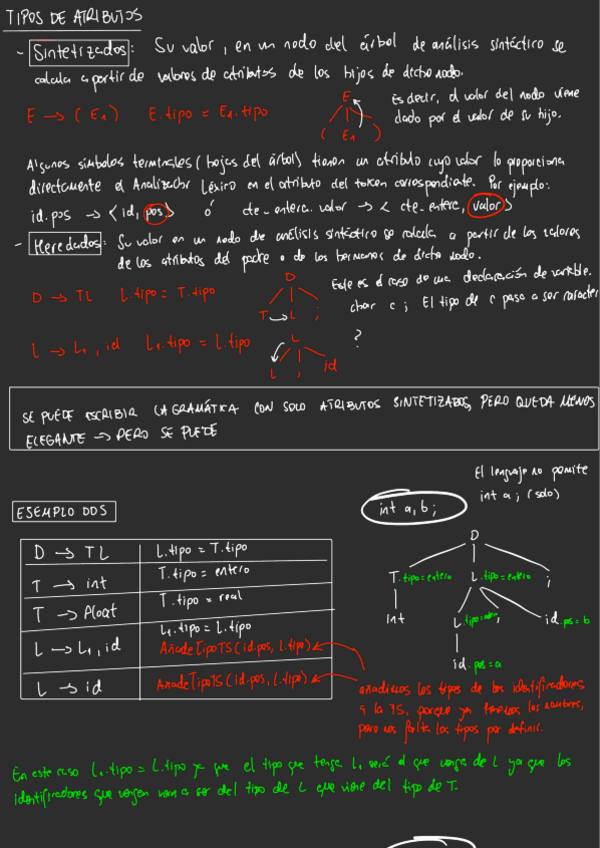 TIPOS DE ATRIBUTOS
- Sintetizados: Su valor, en un nodo del árbol de análisis sintáctico se
calcula a partir de valores de atributos de los hijos de dicho nodo.
E → ( E₁ ) E.tipo = E₁.tipo
E
( E₁ )
Es decir, el valor del nodo viene
dado por el valor de su hijo.
Algunos símbolos terminales (hojas del árbol) tienen un atributo cuyo valor lo proporciona
directamente el Analizador Léxico en el atributo del token correspondiente. Por ejemplo:
id.pos → <id, pos> ó cte_entera.valor → < cte_entera, valor >
- Heredados: Su valor en un nodo de análisis sintáctico se calcula a partir de los valores
de los atributos del padre o de los hermanos de dicho nodo.
D → TL L.tipo = T.tipo
D
T → L ;
Este es el caso de una declaración de variable.
char c ; El tipo de c pasa a ser carácter
L → L₁, id L₁.tipo = L.tipo
L
L , id
?
SE PUEDE ESCRIBIR LA GRAMÁTICA CON SOLO ATRIBUTOS SINTETIZADOS, PERO QUEDA MENOS
ELEGANTE → PERO SE PUEDE
El lenguaje no permite
int a ; (solo)
EJEMPLO DDS
int a, b ;
D → TL L.tipo = T.tipo
T → int T.tipo = entero
T → float T.tipo = real
L → L₁, id L₁.tipo = L.tipo
AñadeTipoTS(id.pos, L.tipo)
L → id AñadeTipoTS(id.pos, L.tipo)
D
T.tipo=entero L.tipo=entero ;
int L.tipo , id.pos=b
id.pos=a
añadimos los tipos de los identificadores
a la TS, porque ya tenemos los nombres,
pero nos falta los tipos por definir.
En este caso L₁.tipo = L.tipo ya que el tipo que tenga L₁ será el que venga de L ya que los
identificadores que vengan van a ser del tipo de L que viene del tipo de T.